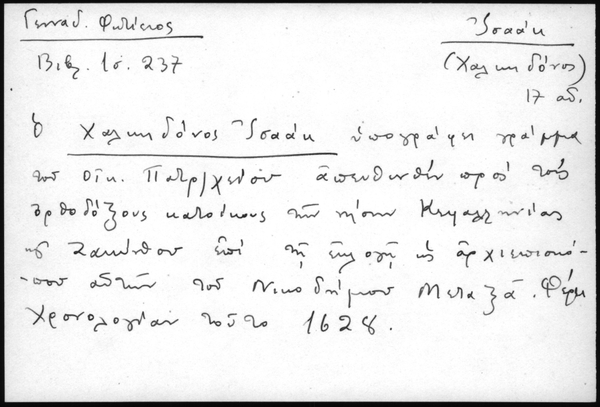 Γενναδ. Φωτίειος
Ἰσαάκ
Βιβλ. Ἱσ. 237
(Χαλκηδόνος)
17 αἰ.
Ὁ Χαλκηδόνος Ἰσαάκ ὑπογράφει γράμμα
τοῦ Οἰκ. Πατρ)χείου ἀπευθυνθέν πρός τούς
ὀρθοδόξους κατοίκους τῶν νήσων Κεφαλληνίας
καί Ζακύνθου ἐπί τῇ ἐκλογῇ ὡς ἀρχιεπισκό-
-που αὐτῶν τοῦ Νικοδήμου Μεταξᾶ. Φέρει
χρονολογίαν τοῦτο 1628.